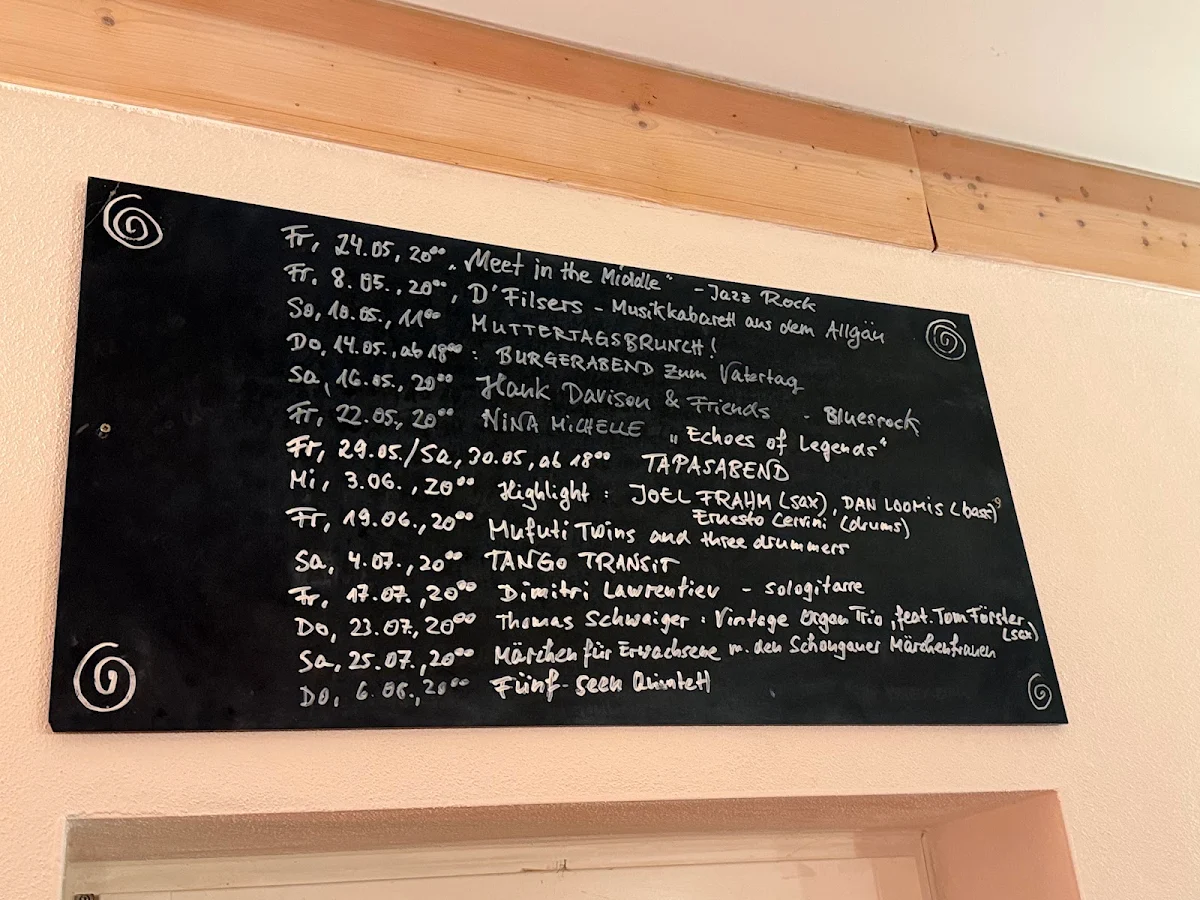 Fr, 24.05, 20⁰⁰ „Meet in the Middle“ - Jazz Rock
Fr. 8. 05., 20⁰⁰, D'Filsers - Musikkabarett aus dem Allgäu
So, 10.05., 11⁰⁰ MUTTERTAGSBRUNCH!
Do, 14.05., ab 18⁰⁰: BURGERABEND zum Vatertag
Sa, 16.05., 20⁰⁰ Hank Davison & Friends - Bluesrock
Fr, 22.05, 20⁰⁰ NINA MICHELLE „Echoes of Legends“
Fr, 29.05./Sa, 30.05, ab 18⁰⁰ TAPASABEND
Mi, 3.06., 20⁰⁰ Highlight: JOEL FRAHM (sax), DAN LOOMIS (bass),
Ernesto Cervini (drums)
Fr, 19.06., 20⁰⁰ Mufuti Twins and three drummers
Sa, 4.07., 20⁰⁰ TANGO TRANSIT
Fr, 17.07., 20⁰⁰ Dimitri Lawrentiev - sologitarre
Do, 23.07, 20⁰⁰ Thomas Schwaiger: Vintage Organ Trio, feat. Tom Förster
(sax)
Sa, 25.07., 20⁰⁰ Märchen für Erwachsene m. den Schongauer Märchenfrauen
DO, 6.08., 20⁰⁰ Fünf-Seen Quintett